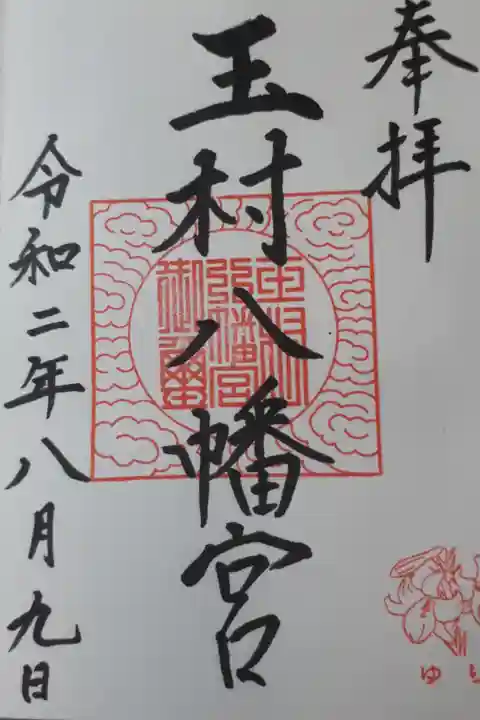 奉拝
玉村八幡宮
令和二年八月九日
ゆり